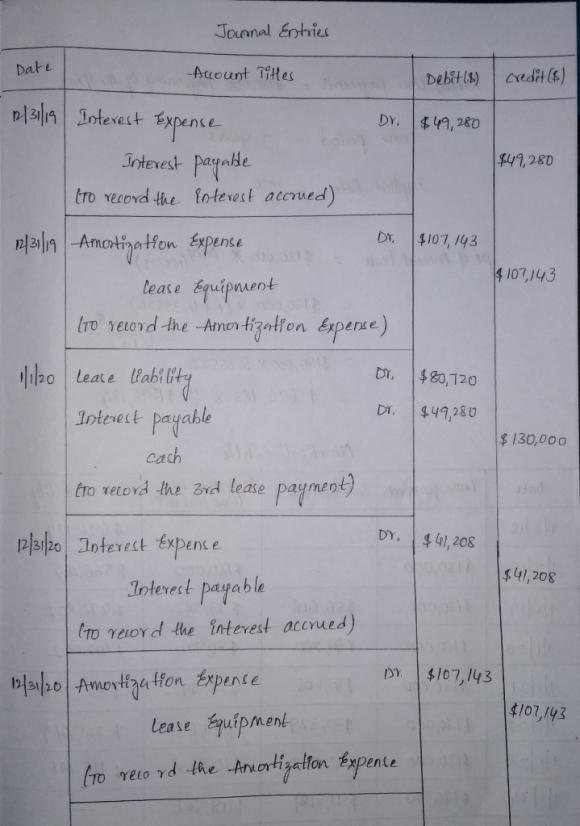 Journal Entries
Date Account Titles Debit($) Credit($)
12/31/19 Interest Expense Dr. $49,280
Interest payable $49,280
(To record the Interest accrued)
12/31/19 Amortization Expense Dr. $107,143
Lease Equipment $107,143
(To record the Amortization Expense)
1/1/20 Lease liability Dr. $80,720
Interest payable Dr. $49,280
cash $130,000
(To record the 3rd lease payment)
12/31/20 Interest Expense Dr. $41,208
Interest payable $41,208
(To record the Interest accrued)
12/31/20 Amortization Expense Dr. $107,143
Lease Equipment $107,143
(To record the Amortization Expense